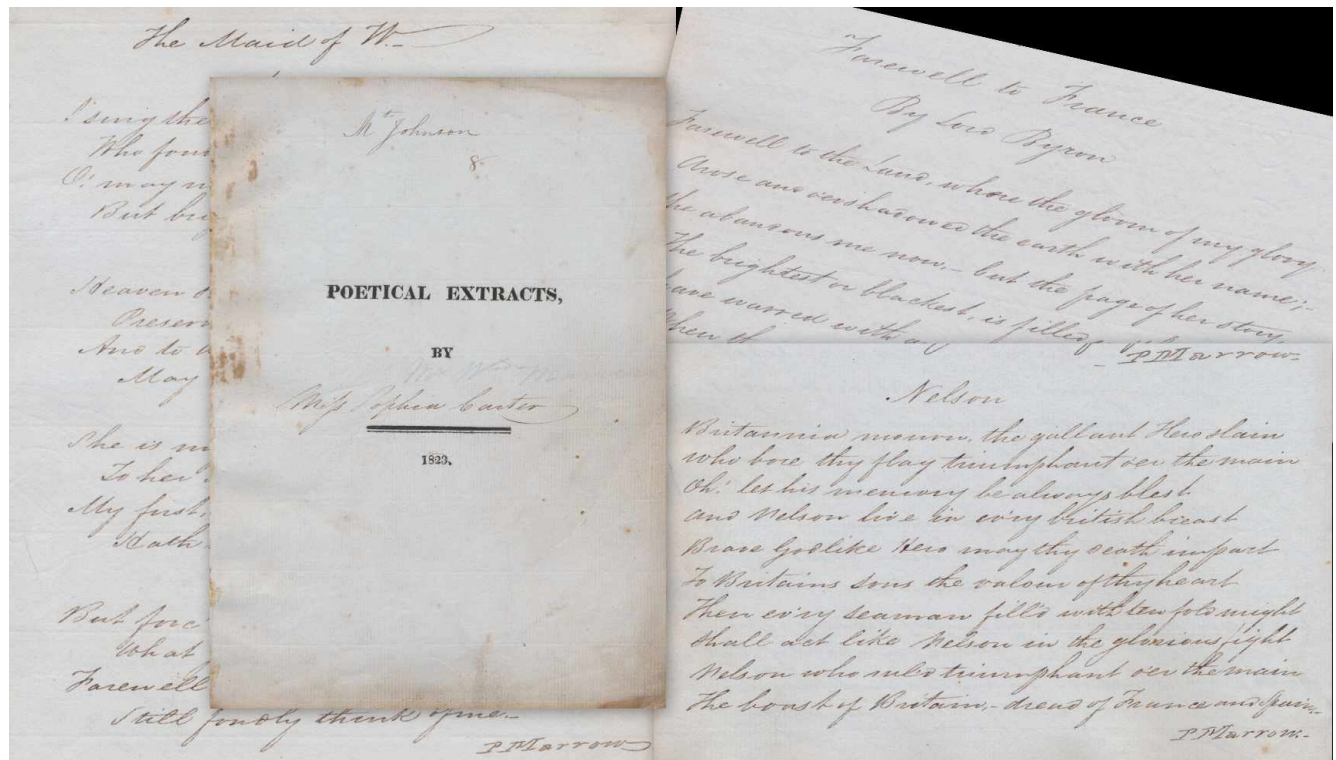 The Maid of W.
I sing the
Who
O! may
But
Heaven
Preserv
And to
May
She is
To her
My first
Hath
But
What
Farewell
Still fondly think of me.-
P Marrow
Mr Johnson
8
POETICAL EXTRACTS,
BY
Miss Sophia Carter
1823.
Farewell to France
By Lord Byron
Farewell to the Land, where the gloom of my glory
Arose and o'ershadowed the earth with her name;-
She abandons me now,- but the page of her story
The brightest or blackest, is filled
have warred with a
When th
P Marrow-
Nelson
Britannia mourn, the gallant Hero slain
who bore thy flag triumphant oer the main
Oh! let his memory be always blest
and Nelson live in ev'ry british breast
Brave Godlike Hero may thy death impart
To Britains sons the valour of thy heart
Then ev'ry seaman fill'd with tenfold might
Shall act like Nelson in the glorious fight
Nelson who rul'd triumphant oer the main
The boast of Britain,- dread of France and Spain.-
P Marrow.-